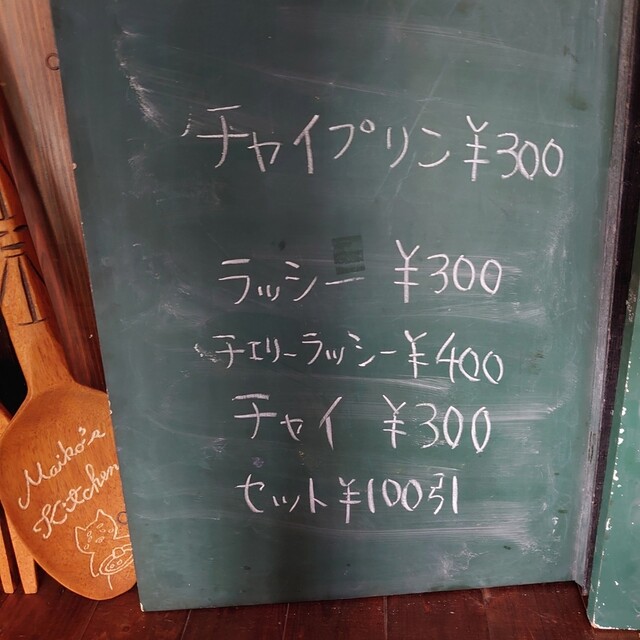 チャイプリン ¥300
ラッシー ¥300
チェリーラッシー ¥400
チャイ ¥300
セット ¥100引
Maiko's
Kitchen